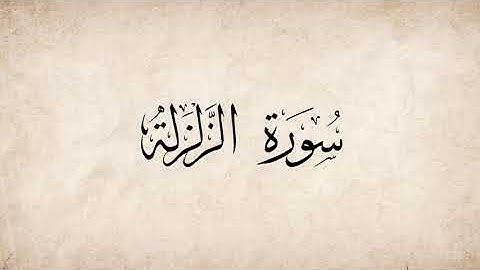 سُورَة الزَّلزَلةُ